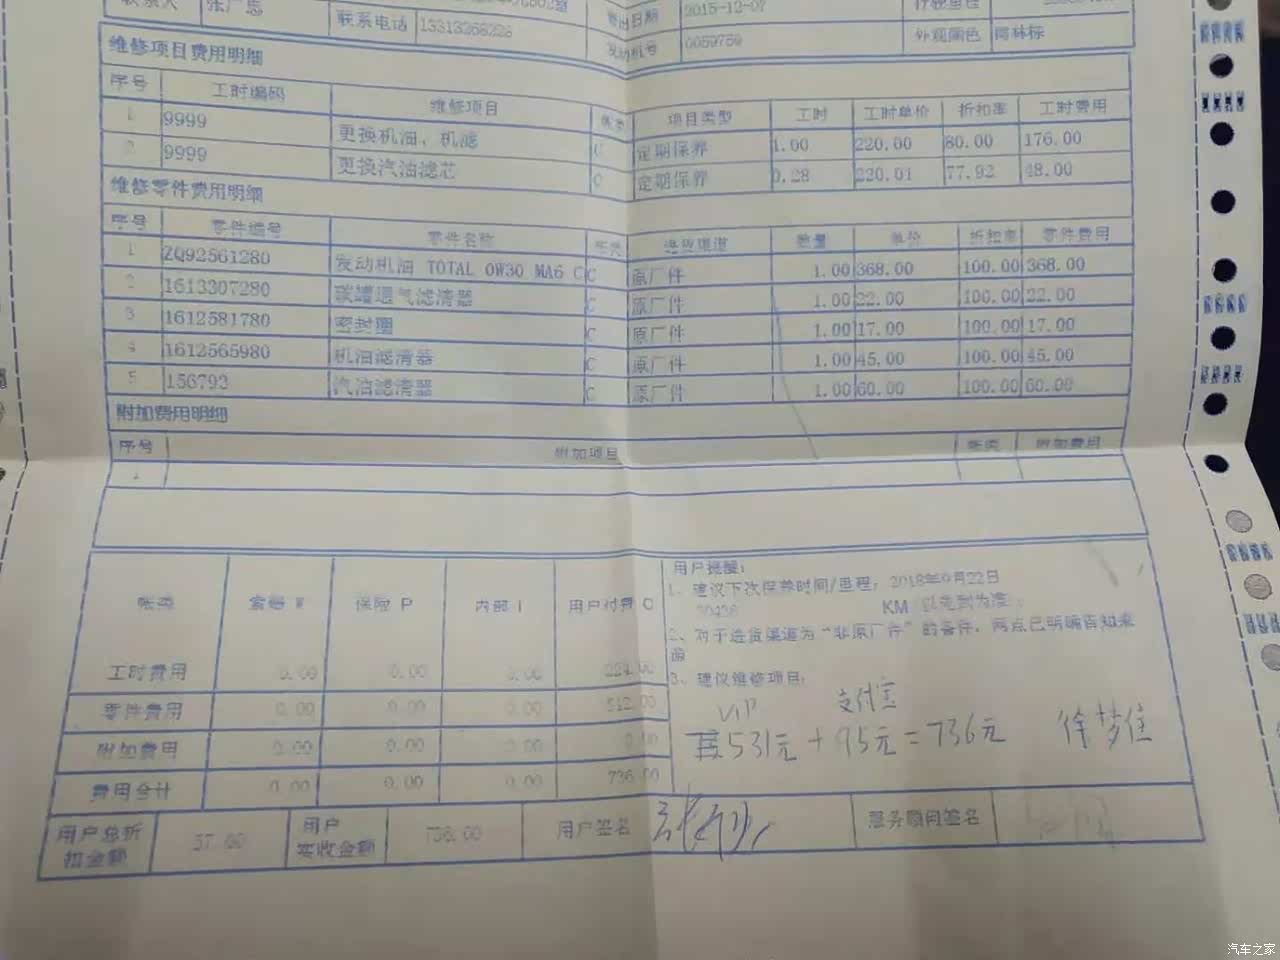 联系人 张广志
联系电话 13313266226 售出日期 2015-12-07
发动机号 0059759 外观颜色
维修项目费用明细
序号 工时编码 维修项目 帐类 项目类型 工时 工时单价 折扣率 工时费用
1 9999 更换机油、机滤 C 定期保养 1.00 220.00 80.00 176.00
2 9999 更换汽油滤芯 C 定期保养 0.28 220.01 77.92 48.00
维修零件费用明细
序号 零件编号 零件名称 帐类 进货渠道 数量 单价 折扣率 零件费用
1 ZQ92561280 发动机油 TOTAL 0W30 MA6 C C 原厂件 1.00 368.00 100.00 368.00
2 1613307280 碳罐通气滤清器 C 原厂件 1.00 22.00 100.00 22.00
3 1612581780 密封圈 C 原厂件 1.00 17.00 100.00 17.00
4 1612565980 机油滤清器 C 原厂件 1.00 45.00 100.00 45.00
5 156792 汽油滤清器 C 原厂件 1.00 60.00 100.00 60.00
附加费用明细
序号 附加项目 帐类 附加费用
1
帐类 索赔 W 保险 P 内部 I 用户付费 C
工时费用 0.00 0.00 0.00 224.00
零件费用 0.00 0.00 0.00 512.00
附加费用 0.00 0.00 0.00 0.00
费用合计 0.00 0.00 0.00 736.00
用户提醒：
1、建议下次保养时间/里程：2018年9月22日
KM 以先到为准
2、对于进货渠道为“非原厂件”的备件，网点已明确告知来
源
3、建议维修项目：
VIP 支付宝
531元 + 95元 = 736元 徐梦佳
用户总折扣金额 57.00 用户实收金额 736.00 用户签名 服务顾问签名
汽车之家